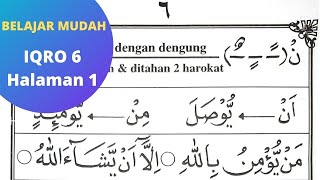 BELAJAR MUDAH
IQRO 6
Halaman 1
٦
dengan dengung
& ditahan 2 harokat
نْ (ــًــٍــٌ)
اَنْ ← يُّوْصَلَ مِنْ ← يَّوْمَئِذٍ
مَنْ يُّؤْمِنُ بِاللهِ ○ اِلَّآ اَنْ يَّشَآءَ اللهُ ○